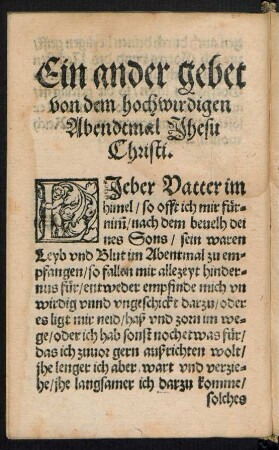 Ein ander gebet
von dem hochwirdigen
Abendtmal Jhesu
Christi.
LJeber Vatter im
himel / so offt ich mir für-
nim̃ / nach dem beuelh dei
nes Sons / sein waren
Leyb vnd Blut im Abentmal zu em-
pfangen / so fallen mir allezeyt hinder-
nus für / entweder empfinde mich vn
wirdig vnnd vngeschickt darzu / oder
es ligt mir neid / haß vnd zorn im we-
ge / oder ich hab sonst noch etwas für /
das ich zuuor gern außrichten wolt /
jhe lenger ich aber wart vnd verzie-
he / jhe langsamer ich darzu komme /
solches